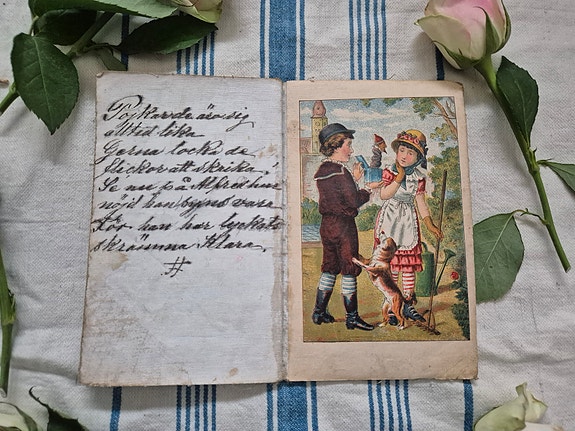 Pojkor de äro sig
alltid lika
Gerna locka de
flickor att skrika!
Se nu på Alfred hur
nöjd han tyns vara
För han har lyckats
skrämma Klara.